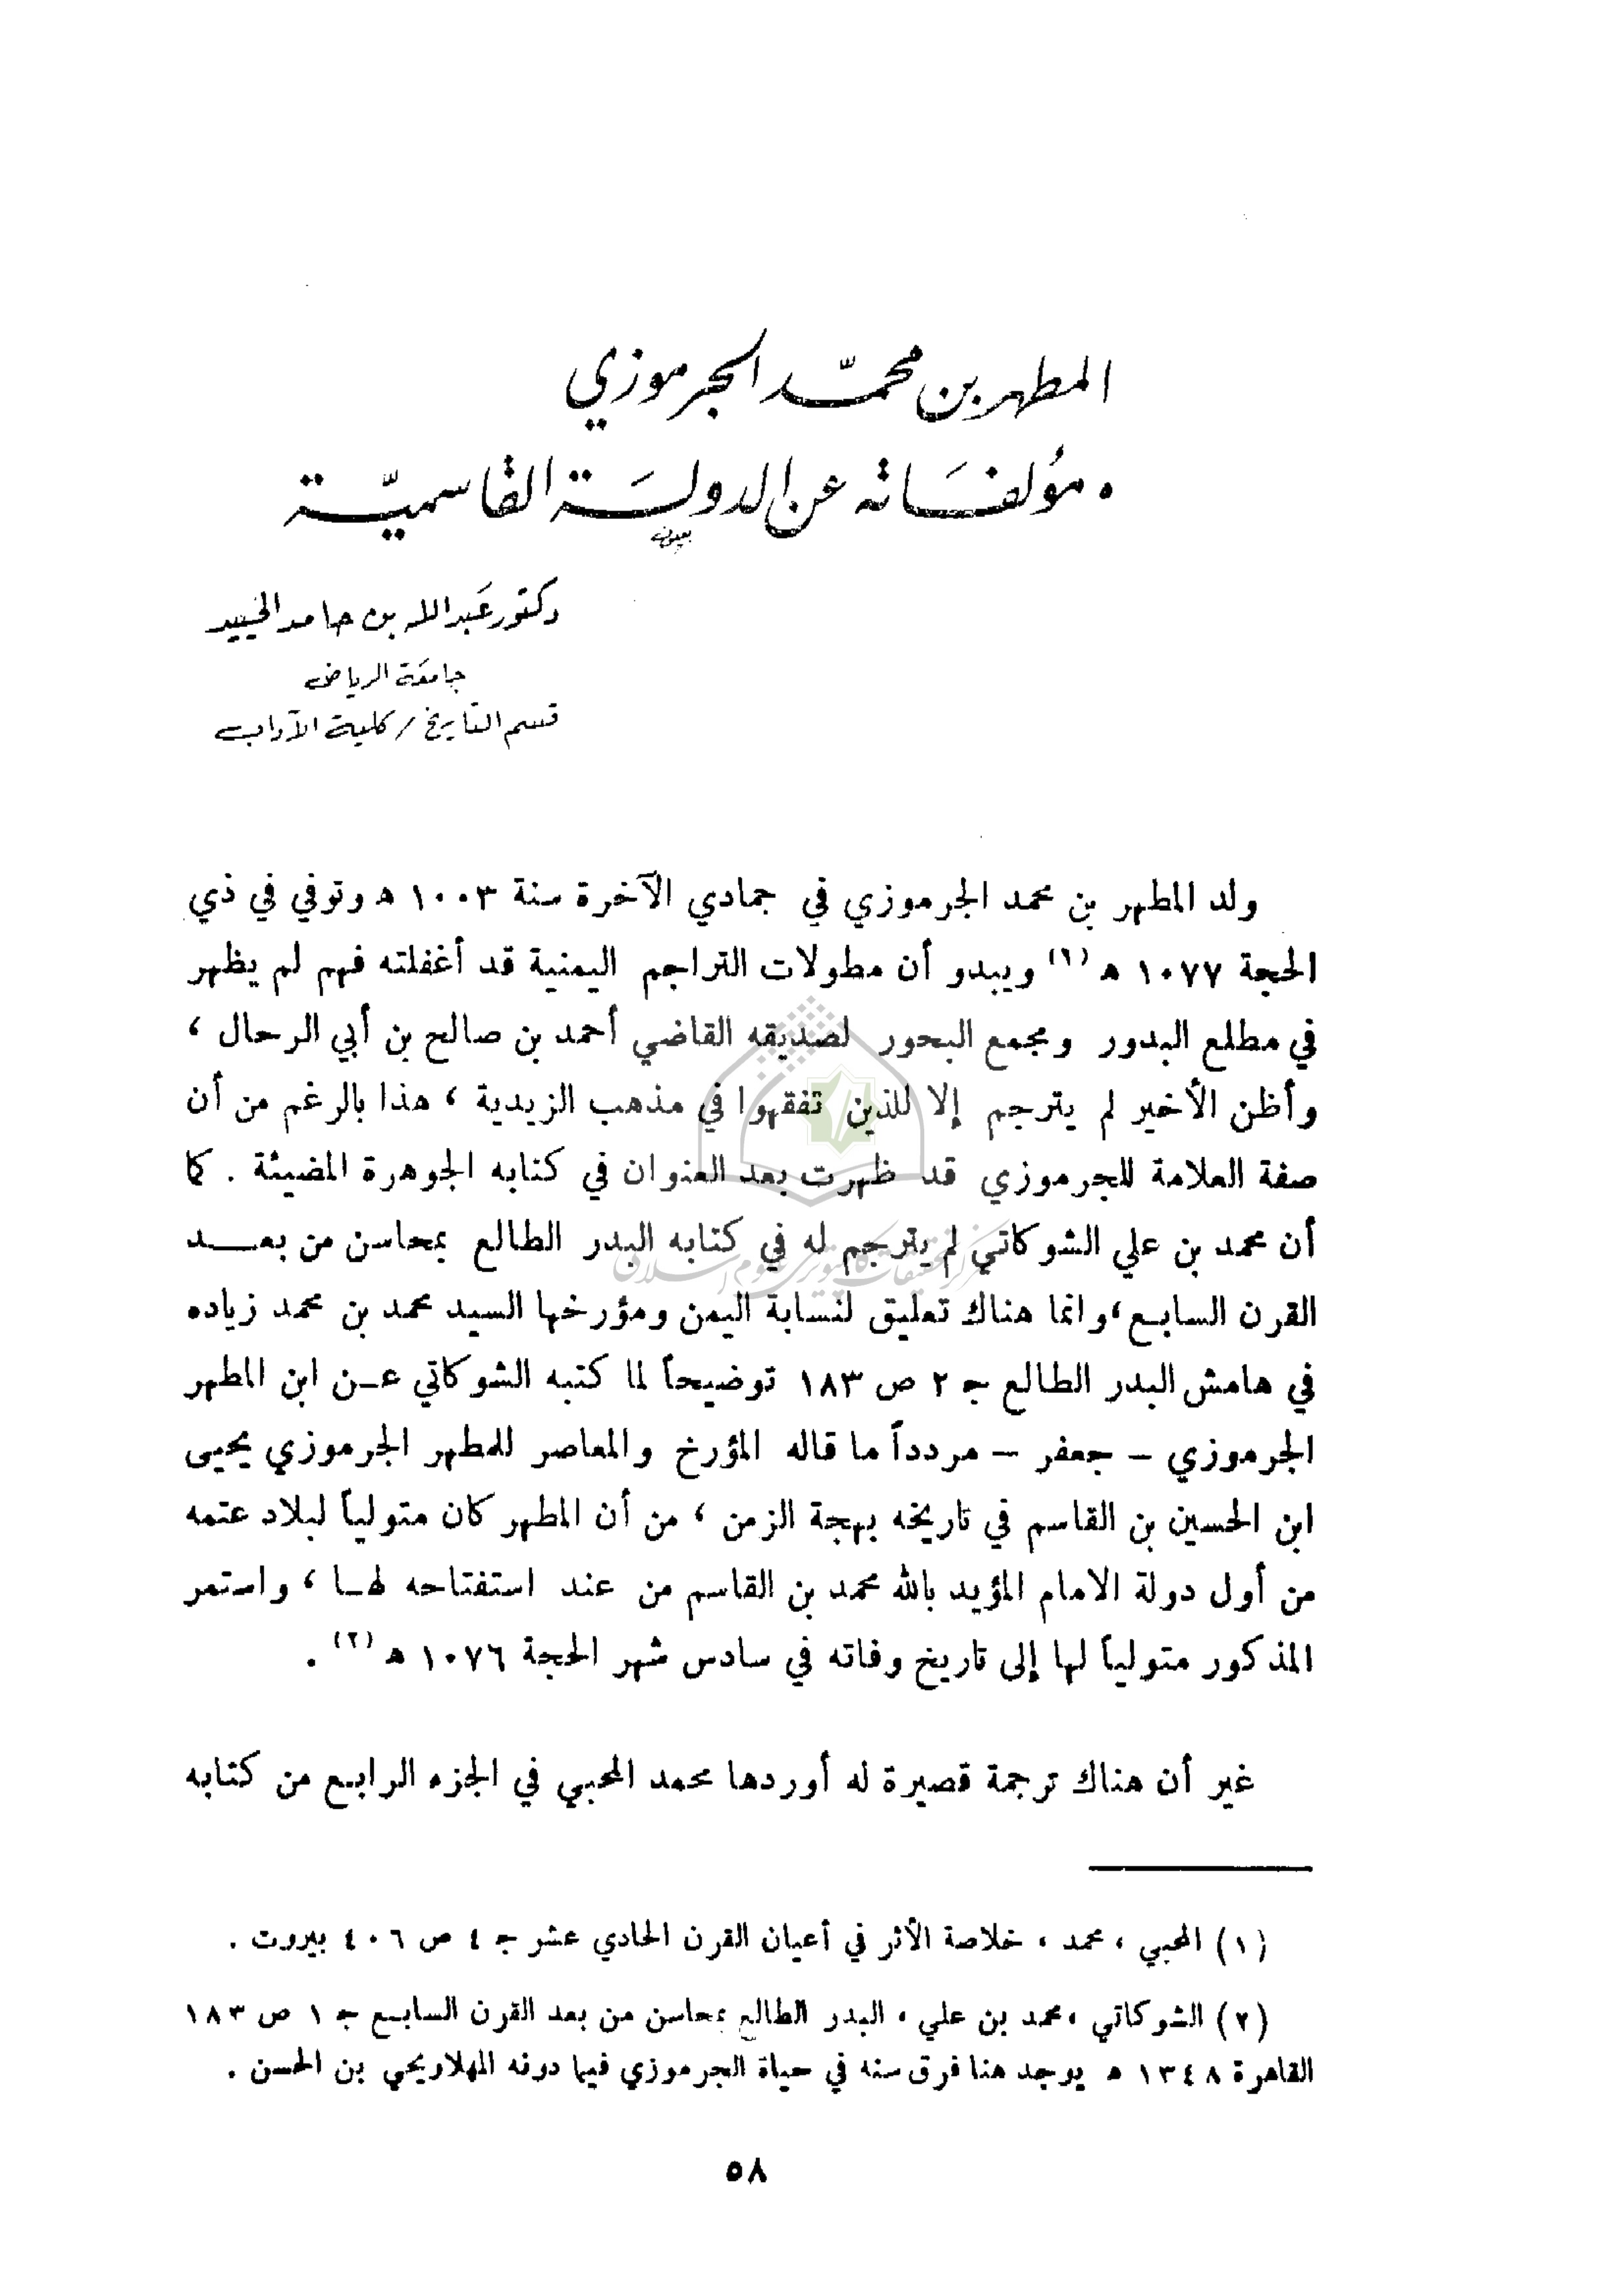 المطهر بن محمّد الجرموزي
• مؤلفاته عن الدولة القاسميّة
دكتور عبدالله بن حامد الحييد
جامعة الرياض
قسم التاريخ / كلية الآداب
ولد المطهر بن محمد الجرموزي في جمادي الآخرة سنة ١٠٠٣ ه وتوفي في ذي
الحجة ١٠٧٧ ه (١) ويبدو أن مطولات التراجم اليمنية قد أغفلته فهم لم يظهر
في مطلع البدور ومجمع البحور لصديقه القاضي أحمد بن صالح بن أبي الرحال ،
وأظن الأخير لم يترجم إلا للذين تفقهوا في مذهب الزيدية ، هذا بالرغم من أن
صفة العلامة للجرموزي قد ظهرت بعد العنوان في كتابه الجوهرة المضيئة . كما
أن محمد بن علي الشوكاتي لم يترجم له في كتابه البدر الطالع بمحاسن من بعد
القرن السابع ، وانما هناك تعليق لنسابة اليمن ومؤرخها السيد محمد بن محمد زياده
في هامش البدر الطالع ج ٢ ص ١٨٣ توضيحاً لما كتبه الشوكاتي عن ابن المطهر
الجرموزي – جعفر – مردداً ما قاله المؤرخ والمعاصر للمطهر الجرموزي يحيى
ابن الحسين بن القاسم في تاريخه بهجة الزمن ، من أن المطهر كان متولياً لبلاد عتمه
من أول دولة الامام المؤيد بالله محمد بن القاسم من عند استفتاحه لها ، واستمر
المذكور متولياً لها إلى تاريخ وفاته في سادس شهر الحجة ١٠٧٦ ه (٢) .
غير أن هناك ترجمة قصيرة له أوردها محمد المحبي في الجزء الرابع من كتابه
(١) المحبي ، محمد ، خلاصة الأثر في أعيان القرن الحادي عشر ج ٤ ص ٤٠٦ بيروت .
(٢) الشوكاتي ، محمد بن علي ، البدر الطالع بمحاسن من بعد القرن السابع ج ١ ص ١٨٣
القاهرة ١٣٤٨ ه يوجد هنا فرق سنه في حياة الجرموزي فيما دونه المهلاويحي بن الحسن .
٥٨
مركز تحقيقات كامپيوتري علوم اسلامي